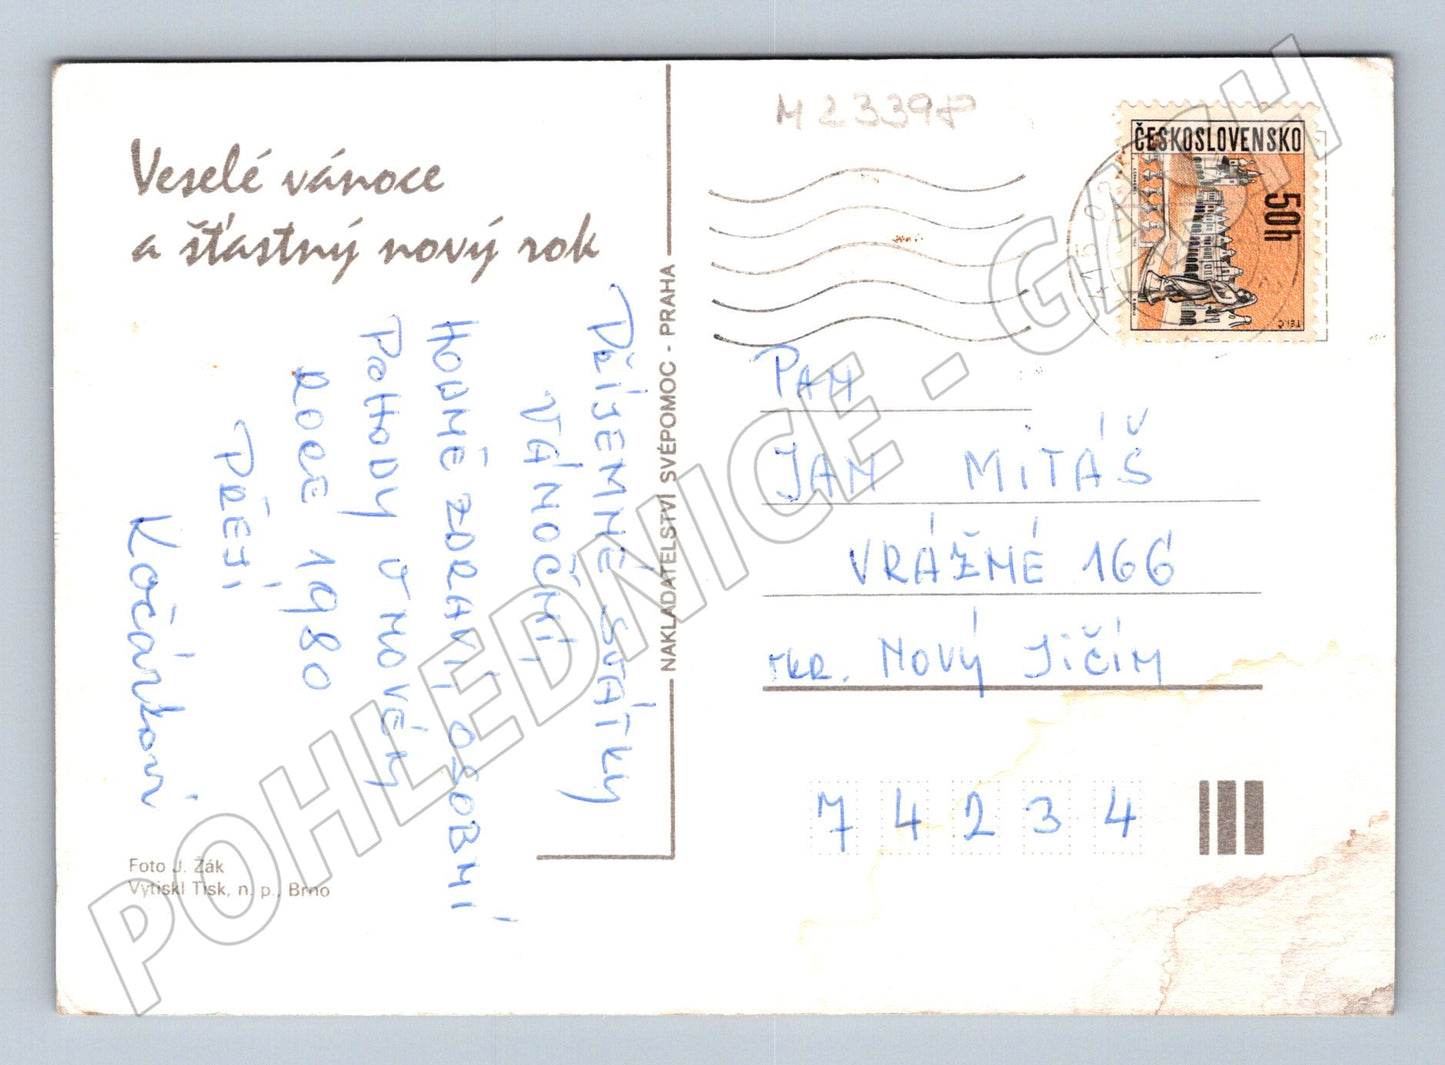 Veselé vánoce
a šťastný nový rok
PŘÍJEMNÉ SVÁTKY
VÁNOČNÍ,
HODNĚ ZDRAVÍ, OSOBNÍ
POHODY V NOVÉM
ROCE 1980
PŘEJÍ
Kočárkovi
Foto J. Žák
Vytiskl Tisk, n. p., Brno
NAKLADATELSTVÍ SVÉPOMOC - PRAHA
M 2339P
ČESKOSLOVENSKO
50h
TELČ
PAN
JAN MITÁŠ
VRÁŽNÉ 166
okr. NOVÝ JIČÍN
74234
POHLEDNICE - GASH